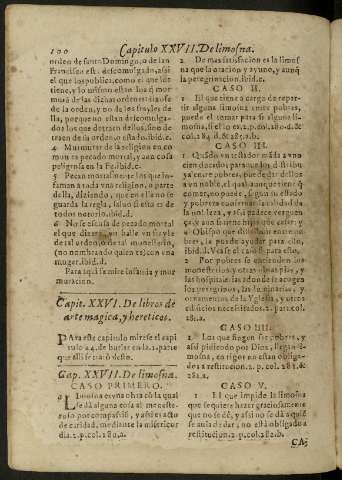 100 Capitulo XXVII. De limosna.
orden de santo Domingo, o de san
Francisco est. descomulgado, assi
el que los publica, como el que sos
tiene, y lo mismo estan los q̃ mur
murã de las dichas ordenes en co
de vna orden, y no de los frayles de
lla, porque no estan descomulga-
dos los que detraen dellos, sino de
traen de la orden, o estado. ibid. c.
4 Murmurar de la religion en co-
mun es pecado mortal, y aun cosa
peligrosa en la Fe. ibid. c.
5 Pecan mortalmẽte los que in-
faman a toda vna religion, o parte
della, diziendo, que en ella no se
guarda la regla, sino si esto es de
todos notorio. ibid. d.
6 No se escusa de pecado mortal
el que dize a vn frayle
de tal orden, o de tal monesterio,
(no nombrando quien es) con vna
muger. ibid. d.
Para aqui se mire infamia y mur
muracion.
Capit. XXVI. De libros de
arte magica, y hereticos.
PAra este capitulo mirese el capi
tulo 24. de burlar en la 2. parte
que alli se tratò desto.
Cap. XXVII. De limosna.
CASO PRIMERO.
LImosna es vna obra cõ la qual
se dà alguna cosa al meneste-
roso por compassiõ, y assi es acto
de caridad, mediante la misericor
dia. 2. p. col. 280. a.
2 De mas satisfacion es la limos
na que la oracion y ayuno, y aunq̃
la peregrinacion. ibid. c.
CASO II.
1 El que tiene a cargo de repar-
tir alguna limosna entre pobres
puede el tomar para si alguna li-
mosna, si el lo es. 2. p. col. 280. d. &
col. 284. d. & 281. a. b.
CASO III.
1 Quãdo vn testador mãda a vno
cien ducados para que los distribu
ya entre pobres, puede dar dellos
a vn noble, el qual aunque tiene q̃
comer, no puede, segun su estado
y pobreza conseruar la calidad de
la nobleza, y assi padece verguen
ça, o aun si tiene hijas que casar, y
al Obispo que distribuir entre po-
bres, la puede ayudar para ello,
ibid. d. Vease el caso 8. para esto.
2 Por pobres se entienden los
monesterios y otras obras pias, y
los hospitales a donde se acogen
los peregrinos, las luminarias, or-
namentos de la Yglesia, y otros
edificios necessitados. 2. par. col.
281. a.
CASO IIII.
1 Los que fingen ser pobres, y
assi pidiendo por Dios, llegan li-
mosna, en rigor no estan obliga-
dos a restitucion. 2. p. col. 281. &
282. a.
CASO V.
1 El que impide la limosna
que se quiere hazer graciosamente
que no se dè, y assi no se dà a quien
se auia de dar, no està obligado a
restitucion. 2. p. col. 282. b.
CA-